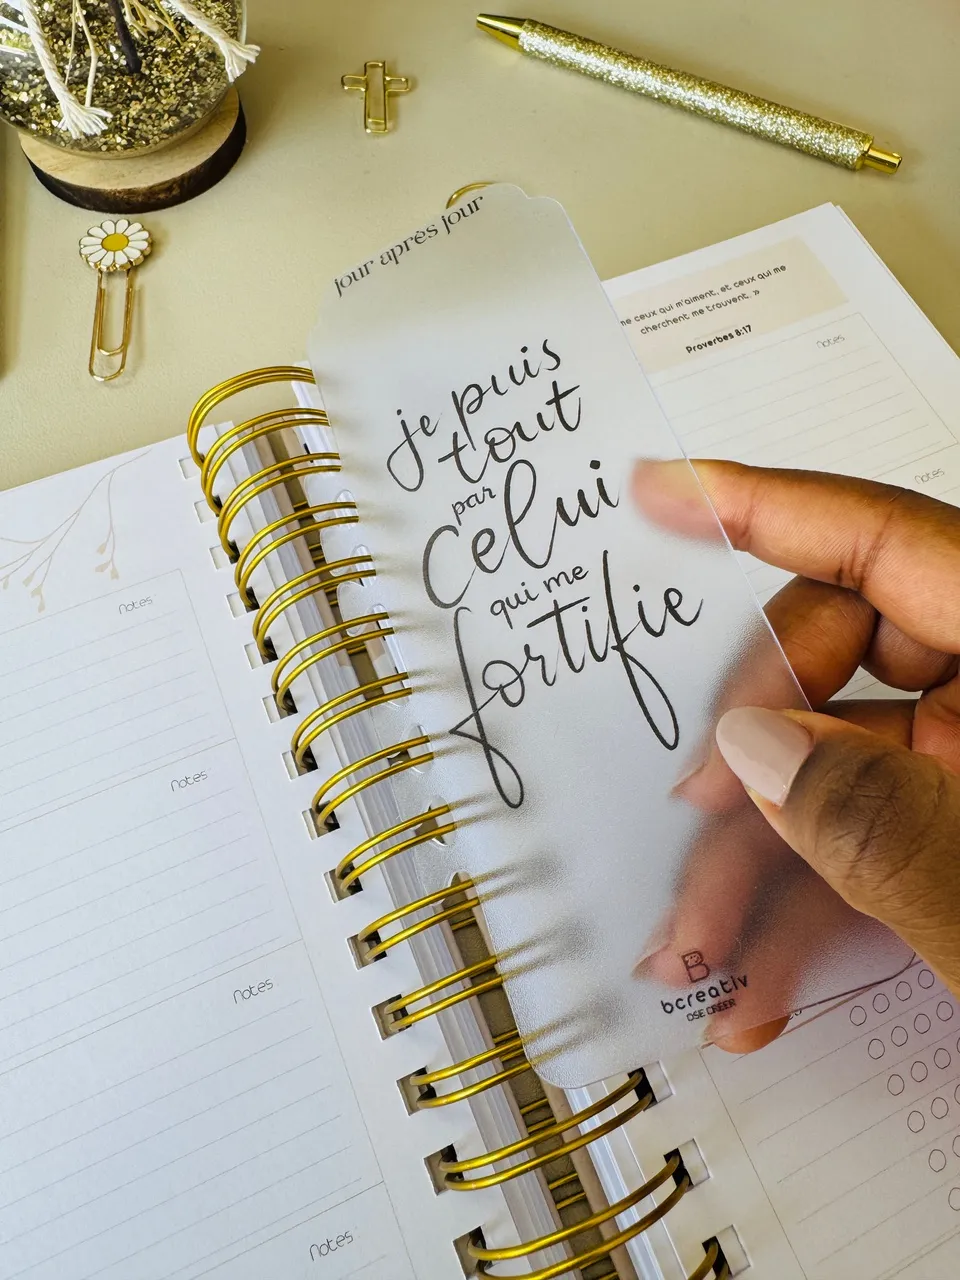 jour après jour
je puis
tout
par
celui
qui me
fortifie
bcreativ
OSE CRÉER
me ceux qui m'aiment, et ceux qui me
cherchent me trouvent. »
Proverbes 8:17
notes
notes
notes
notes
notes
notes